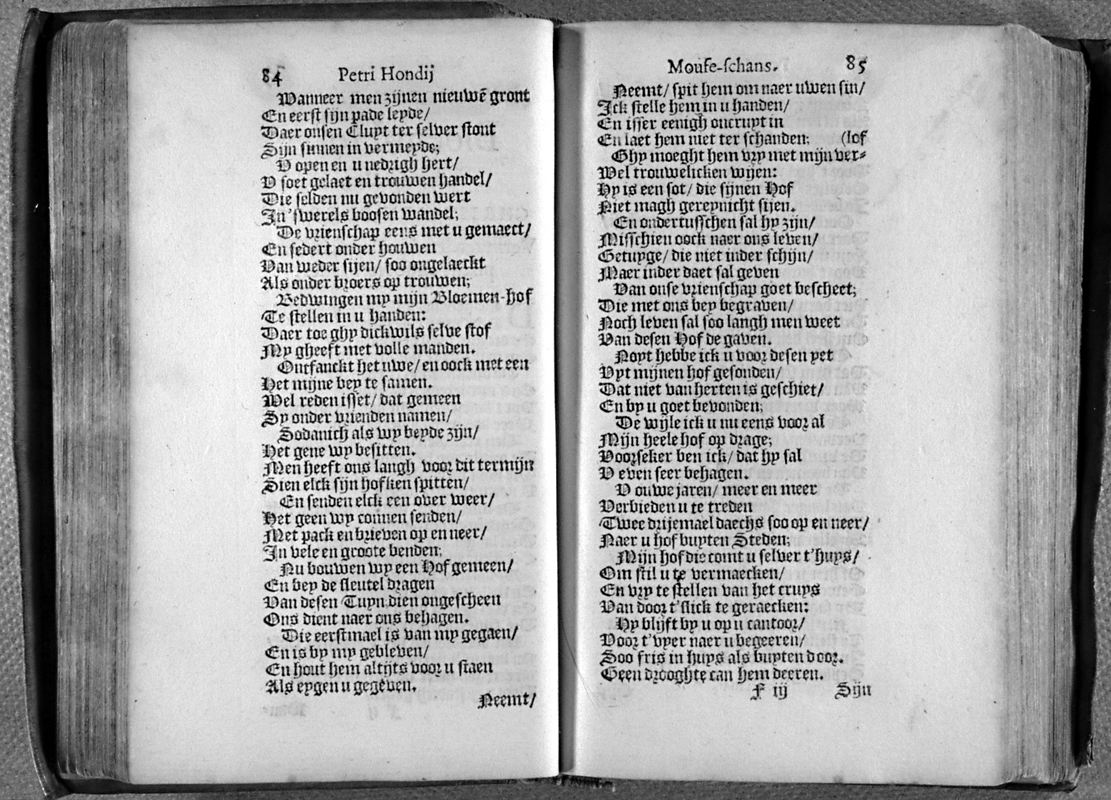 84 Petri Hondij
Wanneer men zijnen nieuwẽ gront
En eerst sijn pade leyde/
Daer onsen Cluyt ter selver stont
Sijn sinnen in vermeyde;
V open en u nedrigh hert/
V soet gelaet en trouwen handel/
Die selden nu gevonden wert
In 'swerels boosen wandel;
De vrienschap eens met u gemaect/
En sedert onder houwen
Van weder sijen/ soo ongelaeckt
Als onder broers op trouwen;
Bedwingen my mijn Bloemen-hof
Te stellen in u handen:
Daer toe ghy dickwils selve stof
My gheeft met volle manden.
Ontfanckt het uwe/ en oock met een
Het mijne bey te samen.
Wel reden isset/ dat gemeen
Sy onder vrienden namen/
Sodanich als wy beyde zijn/
Het gene wy besitten.
Men heeft ons langh voor dit termijn
Sien elck sijn hofken spitten/
En senden elck een over weer/
Het geen wy connen senden/
Met pack en brieven op en neer/
In vele en groote benden;
Nu bouwen wy een Hof gemeen/
En bey de sleutel dragen
Van desen Tuyn dien ongescheen
Ons dient naer ons behagen.
Die eerstmael is van my gegaen/
En is by my gebleven/
En hout hem altijts voor u staen
Als eygen u gegeven.
Neemt/
Mouse-schans. 85
Neemt/ spit hem om naer uwen sin/
Ick stelle hem in u handen/
En isser eenigh oncruyt in
En laet hem niet ter schanden: (lof
Ghy moeght hem vry met mijn ver-
Wel trouwelicken wijen:
Hy is een sot/ die sijnen Hof
Niet magh gereynicht sijen.
En ondertusschen sal hy zijn/
Misschien oock naer ons leven/
Getuyge/ die niet inder schijn/
Maer inder daet sal geven
Van onse vrienschap goet bescheet;
Die met ons bey begraven/
Noch leven sal soo langh men weet
Van desen Hof de gaven.
Noyt hebbe ick u voor desen yet
Vyt mijnen hof gesonden/
Dat niet van herten is geschiet/
En by u goet bevonden;
De wijle ick u nu eens voor al
Mijn heele hof op drage;
Voorseker ben ick/ dat hy sal
V even seer behagen.
V ouwe jaren/ meer en meer
Verbieden u te treden
Twee drijemael daechs soo op en neer/
Naer u hof buyten Steden;
Mijn hof die comt u selver t'huys/
Om stil u te vermaecken/
En vry te stellen van het cruys
Van door t'slick te geraecken:
Hy blijft by u op u cantoor/
Voor t'vyer naer u begeeren/
Soo fris in huys als buyten door.
Geen drooghte can hem deeren.
F iij Sijn